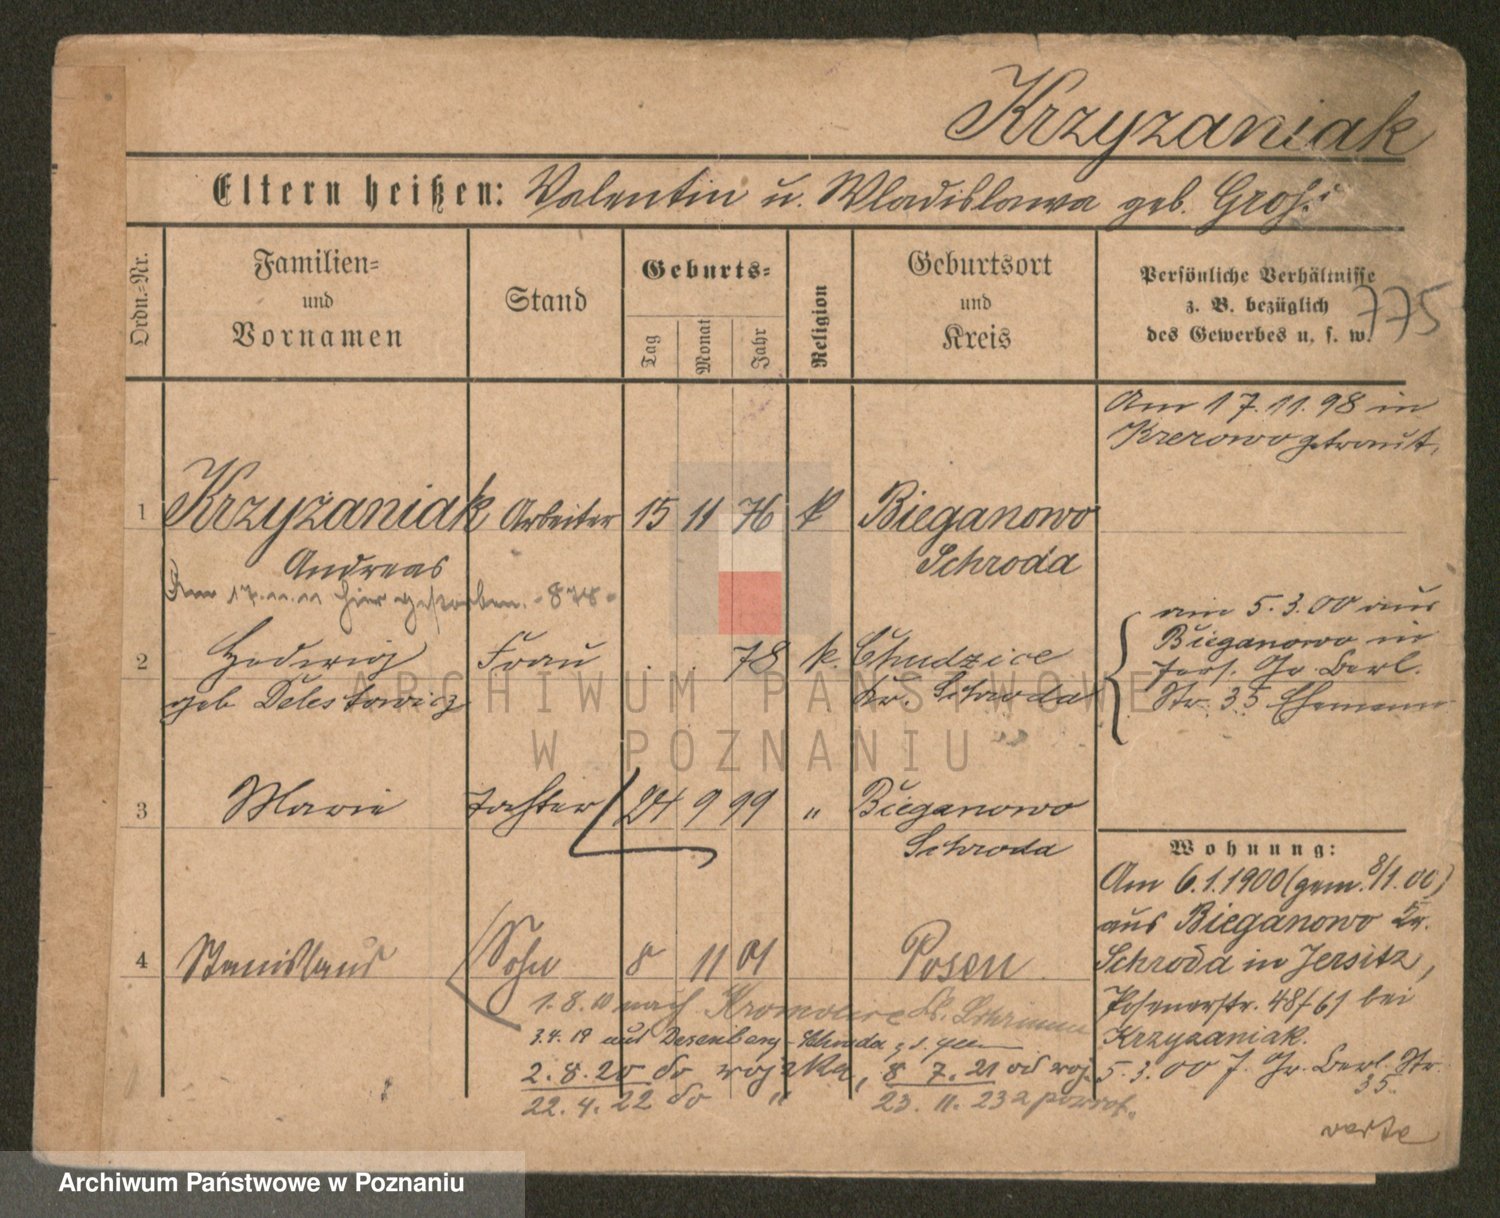 Krzyzaniak
Eltern heißen: Valentin u. Wladislawa geb. Groß
Ordn.-Nr.
Familien-
und
Vornamen
Stand
Geburts-
Tag
Monat
Jahr
Religion
Geburtsort
und
Kreis
Persönliche Verhältnisse
z. B. bezüglich
des Gewerbes u. s. w.
775
Am 17.11.98 in
Krerowo getraut.
1 Krzyżaniak Arbeiter 15 11 76 k Bieganowo
Andreas Schroda
Am 17.11.11 hier gestorben. - 878 -
2 Hedwig Frau 78 k. Chudzice
geb Celestowicz Kr. Schroda
am 5.3.00 aus
Bieganowo in
Jers. Gr. Berl.
Str. 35 Ehemann
3 Marie Tochter 24 9 99 " Bieganowo
Schroda
4 Stanislaus Sohn 8 11 01 Posen
1.8.10 nach Kromolice Kr. Schrimm
3.4.19 aus Schroda
2.8.20 do wojska, 8 7. 21 od woj.
22.4.22 do " 23. 11. 23 a powrot.
Wohnung:
Am 6.1.1900 (gem. 8/1.00)
aus Bieganowo Kr.
Schroda in Jersitz,
Posenerstr. 48/61 bei
Krzyzaniak.
5.3.00 J. Gr. Berl. Str.
35.
verte
ARCHIWUM PAŃSTWOWE
W POZNANIU
Archiwum Państwowe w Poznaniu